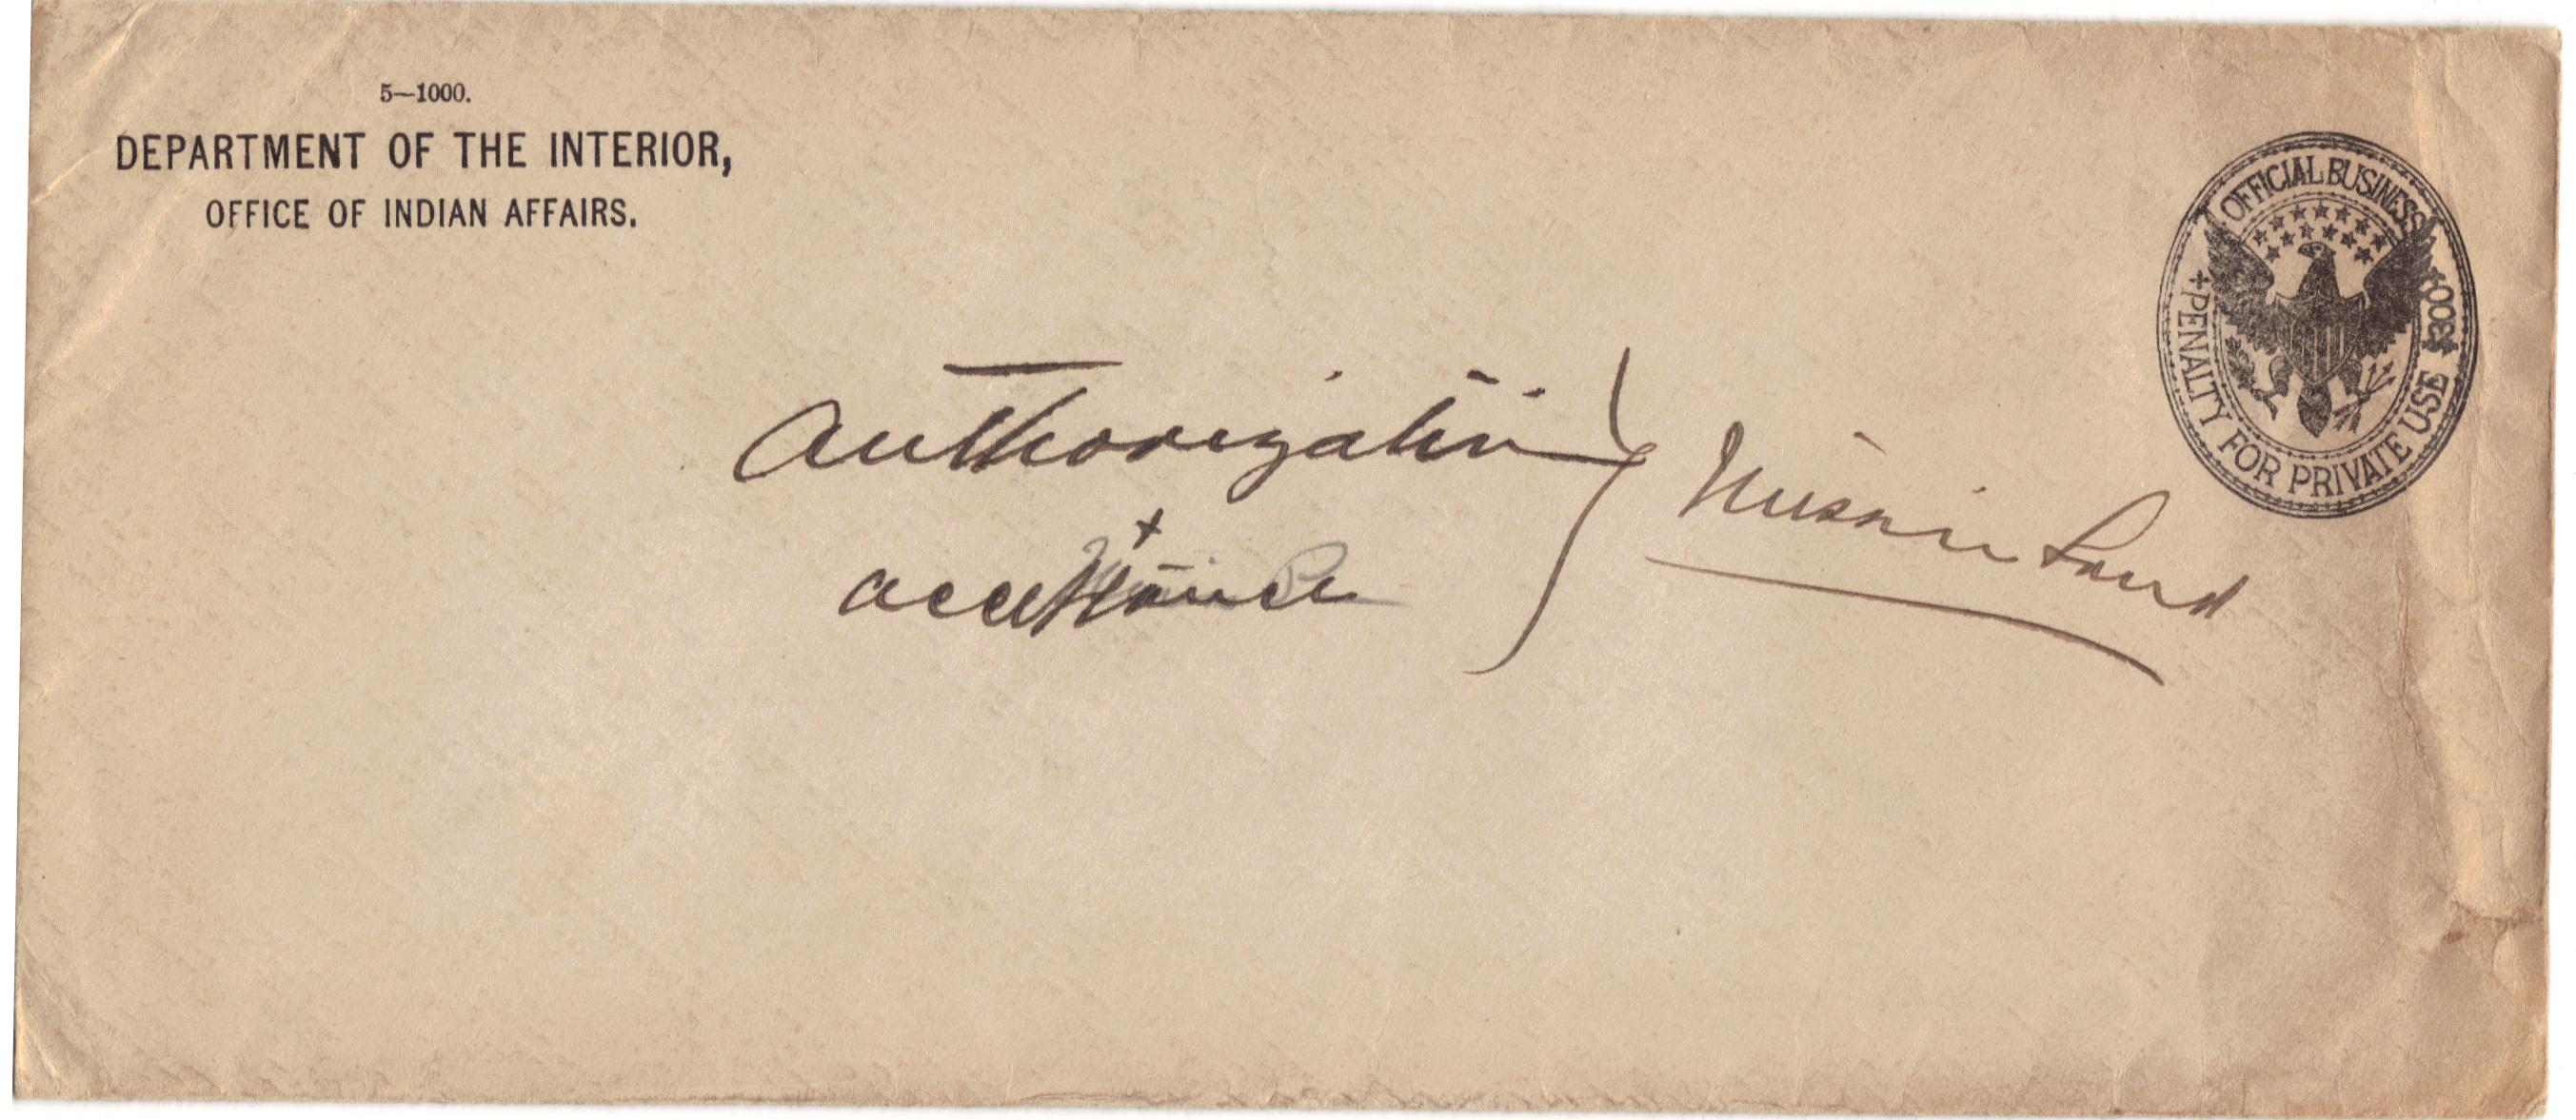 5—1000.
DEPARTMENT OF THE INTERIOR,
OFFICE OF INDIAN AFFAIRS.
OFFICIAL BUSINESS
PENALTY FOR PRIVATE USE $300
Authorization
+
acceptance
Mission Land